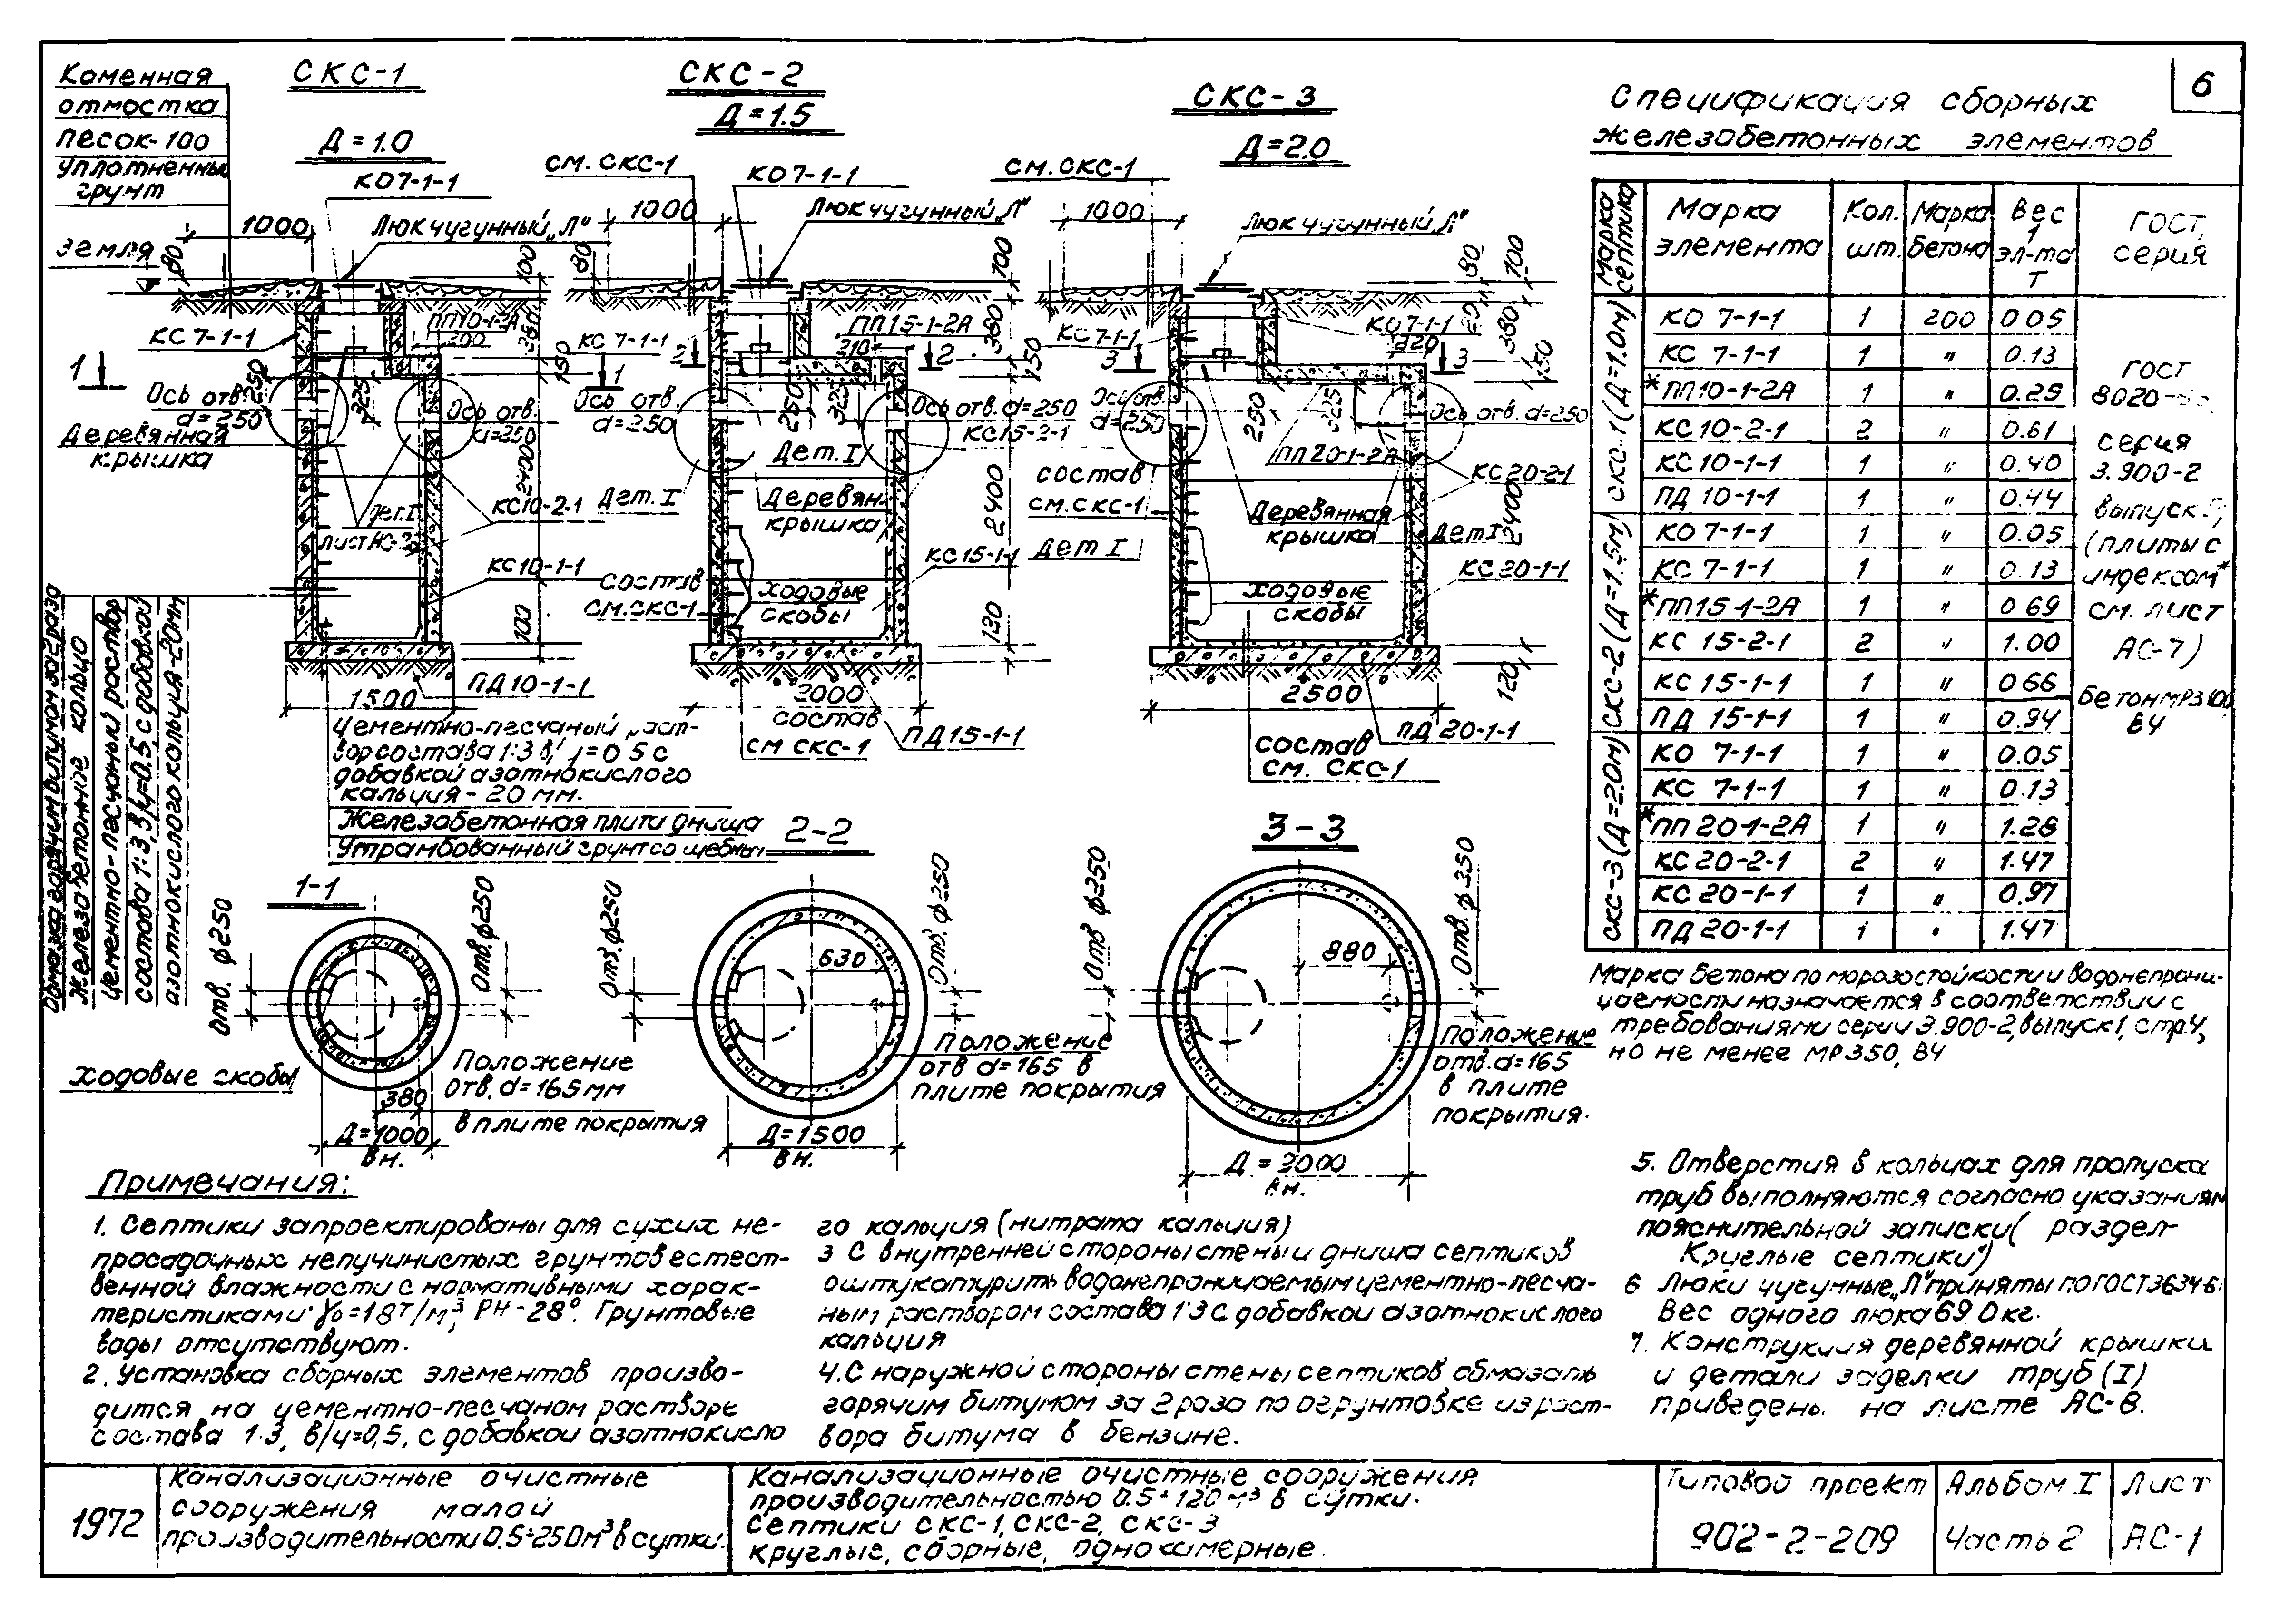 6
СКС-1
Д=1.0
Каменная
отмостка
песок-100
уплотненный
грунт
КО7-1-1
Люк чугунный „Л"
1000
земля
80
100
КС7-1-1
ПП10-1-2А
200
380
150
1
1
Ось отв.
d=250
250
325
Ось отв.
d=250
Деревянная
крышка
2400
КС10-2-1
Дет. I
лист АС-8
КС10-1-1
100
1500
ПД10-1-1
Обмазка горячим битумом за 2 раза
Железобетонное кольцо
Цементно-песчаный раствор
состава 1:3, в/ц=0.5 с добавкой
азотнокислого кальция-20мм
Цементно-песчаный раст-
вор состава 1:3 в/ц=0.5 с
добавкой азотнокислого
кальция-20 мм.
Железобетонная плита днища
Утрамбованный грунт со щебнем
СКС-2
Д=1.5
см. СКС-1
КО7-1-1
1000
Люк чугунный „Л"
80
100
КС 7-1-1
ПП15-1-2А
210
380
150
2
2
Ось отв.
d=250
250
325
Ось отв. d=250
КС15-2-1
Дет. I
Дет. I
Деревян.
крышка
2400
КС15-1-1
состав
см. СКС-1
Ходовые
скобы
120
2000
состав
см СКС-1
ПД15-1-1
СКС-3
Д=2.0
см. СКС-1
1000
Люк чугунный „Л"
80
100
КС7-1-1
КО7-1-1
220
380
150
3
3
Ось отв.
d=250
250
325
Ось отв. d=250
ПП20-1-2А
состав
см. СКС-1
КС20-2-1
Деревянная
крышка
2400
Дет I
Дет I
КС20-1-1
Ходовые
скобы
120
2500
ПД20-1-1
состав
см. СКС-1
1-1
Отв. ф250
Отв. ф250
ходовые скобы
Положение
отв. d=165мм
в плите покрытия
380
Д=1000
вн.
2-2
Отв. ф250
Отв. ф250
630
Положение
отв d=165 в
плите покрытия
Д=1500
вн.
3-3
Отв ф250
Отв. ф350
880
Положение
отв. d=165
в плите
покрытия.
Д=2000
вн.
Спецификация сборных
железобетонных элементов
Марка септика Марка элемента Кол. шт. Марка бетона Вес 1 эл-та Т ГОСТ, серия
СКС-1 (Д=1.0м)
КО 7-1-1 1 200 0.05
КС 7-1-1 1 " 0.13
*ПП10-1-2А 1 " 0.25
КС10-2-1 2 " 0.61
КС10-1-1 1 " 0.40
ПД 10-1-1 1 " 0.44
СКС-2 (Д=1.5м)
КО 7-1-1 1 " 0.05
КС 7-1-1 1 " 0.13
*ПП15-1-2А 1 " 0.69
КС 15-2-1 2 " 1.00
КС 15-1-1 1 " 0.66
ПД 15-1-1 1 " 0.94
СКС-3 (Д=2.0м)
КО 7-1-1 1 " 0.05
КС 7-1-1 1 " 0.13
*ПП 20-1-2А 1 " 1.28
КС20-2-1 2 " 1.47
КС20-1-1 1 " 0.97
ПД 20-1-1 1 " 1.47
ГОСТ
8020-
серия
3.900-2
выпуск
(плиты с
индексом*
см. лист
АС-7)
бетон МРЗ 100
В4
Марка бетона по морозостойкости и водонепрони-
цаемости назначается в соответствии с
требованиями серии 3.900-2, выпуск 1, стр.4,
но не менее МРЗ50, В4
Примечания:
1. Септики запроектированы для сухих не-
просадочных непучинистых грунтов естест-
венной влажности с нормативными харак-
теристиками: γo=1.8т/м³, РН-28°. Грунтовые
воды отсутствуют.
2. Установка сборных элементов произво-
дится на цементно-песчаном растворе
состава 1:3, в/ц=0,5, с добавкой азотнокисло
го кальция (нитрата кальция)
3 С внутренней стороны стены и днища септиков
оштукатурить водонепроницаемым цементно-песча-
ным раствором состава 1:3 с добавкой азотнокислого
кальция
4. С наружной стороны стены септиков обмазать
горячим битумом за 2 раза по огрунтовке из раст-
вора битума в бензине.
5. Отверстия в кольцах для пропуска
труб выполняются согласно указаниям
пояснительной записки( раздел-
Круглые септики")
6 Люки чугунные „Л" приняты по ГОСТ 3634-6
Вес одного люка 69.0кг.
7. Конструкция деревянной крышки
и детали заделки труб (I)
приведены на листе АС-8.
1972
Канализационные очистные
сооружения малой
производительности 0.5÷250м³ в сутки.
Канализационные очистные сооружения
производительностью 0.5÷120м³ в сутки.
Септики СКС-1, СКС-2, СКС-3
круглые, сборные, однокамерные.
Типовой проект
902-2-209
Альбом I
Часть 2
Лист
АС-1